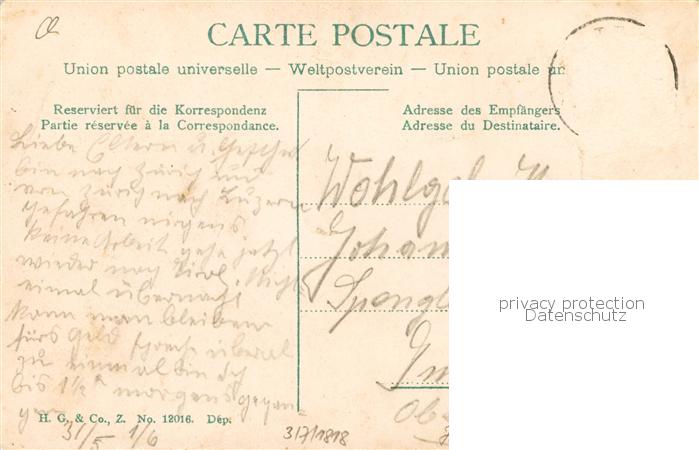 CARTE POSTALE
Union postale universelle — Weltpostverein — Union postale un
Reserviert für die Korrespondenz
Partie réservée à la Correspondance.
Adresse des Empfängers
Adresse du Destinataire.
Liebe Eltern u.
bin nach Zürich
von Zürich nach Luzern
gefahren nirgens
keine Arbeit gehe jetzt
wieder nach Tirol.
einmal übernacht
kann man bleiben
fürs Geld
zu einmal bin ich
bis 1½ morgens gegan-
gen
Wohlgeb. H
Johan
Spengl
H. G. & Co., Z. No. 12016. Dép.
31/5 1/6
317/1818
privacy protection
Datenschutz